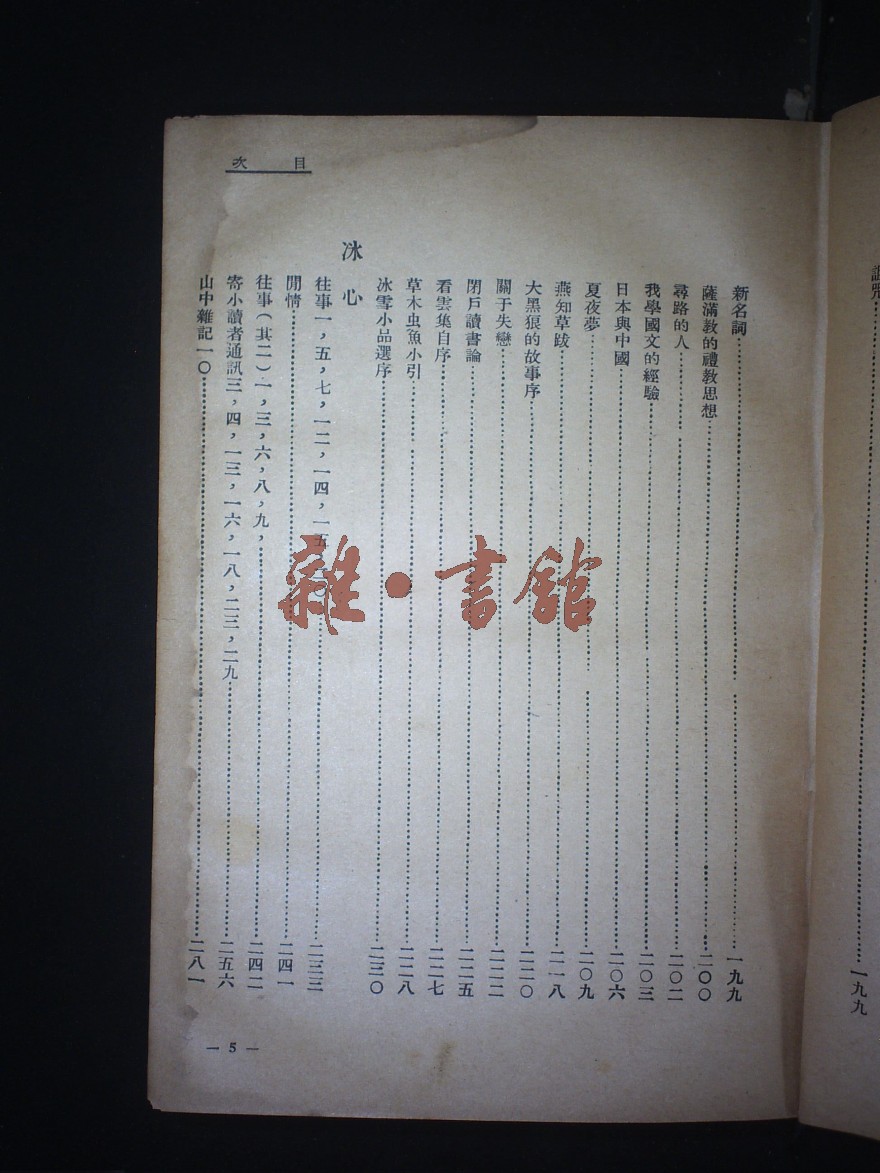 詛咒……一九九
目次
新名詞……一九九
薩滿教的禮教思想……二〇〇
尋路的人……二〇二
我學國文的經驗……二〇三
日本與中國……二〇六
夏夜夢……二〇九
燕知草跋……二一八
大黑狼的故事序……二二〇
關于失戀……二二二
閉戶讀書論……二二五
看雲集自序……二二七
草木虫魚小引……二二八
冰雪小品選序……二三〇
冰心
往事一，五，七，一二，一四，一五……二三三
閒情……二四一
往事（其二）一，三，六，八，九，……二四二
寄小讀者通訊三，四，一三，一六，一八，二三，二九……二五六
山中雜記一〇……二八一
— 5 —
雜•書館